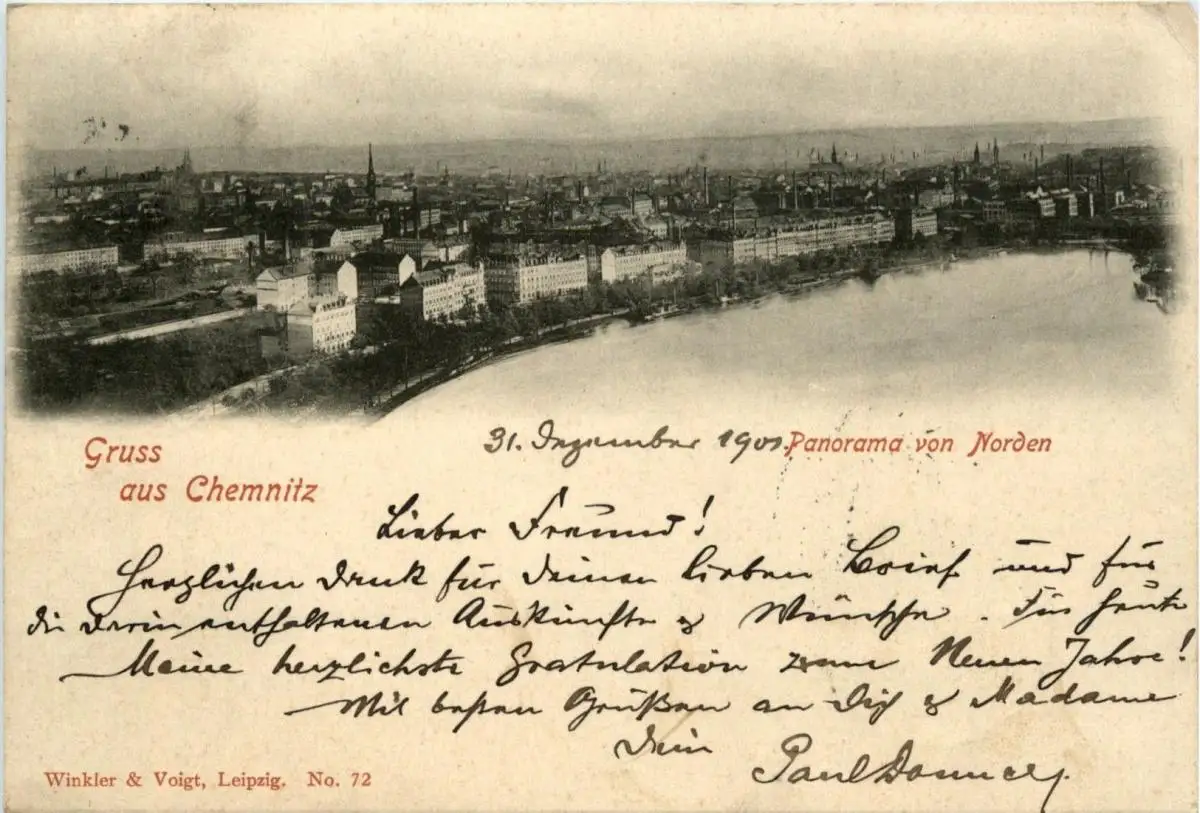 Gruss
aus Chemnitz
31. Dezember 1901.
Panorama von Norden
Lieber Freund!
Herzlichen Dank für Deinen lieben Brief und für
die darin enthaltenen Auskünfte & Wünsche. Für heute
Meine herzlichste Gratulation zum Neuen Jahre!
Mit besten Grüßen an Dich & Madame
Dein Paul
Winkler & Voigt, Leipzig. No. 72